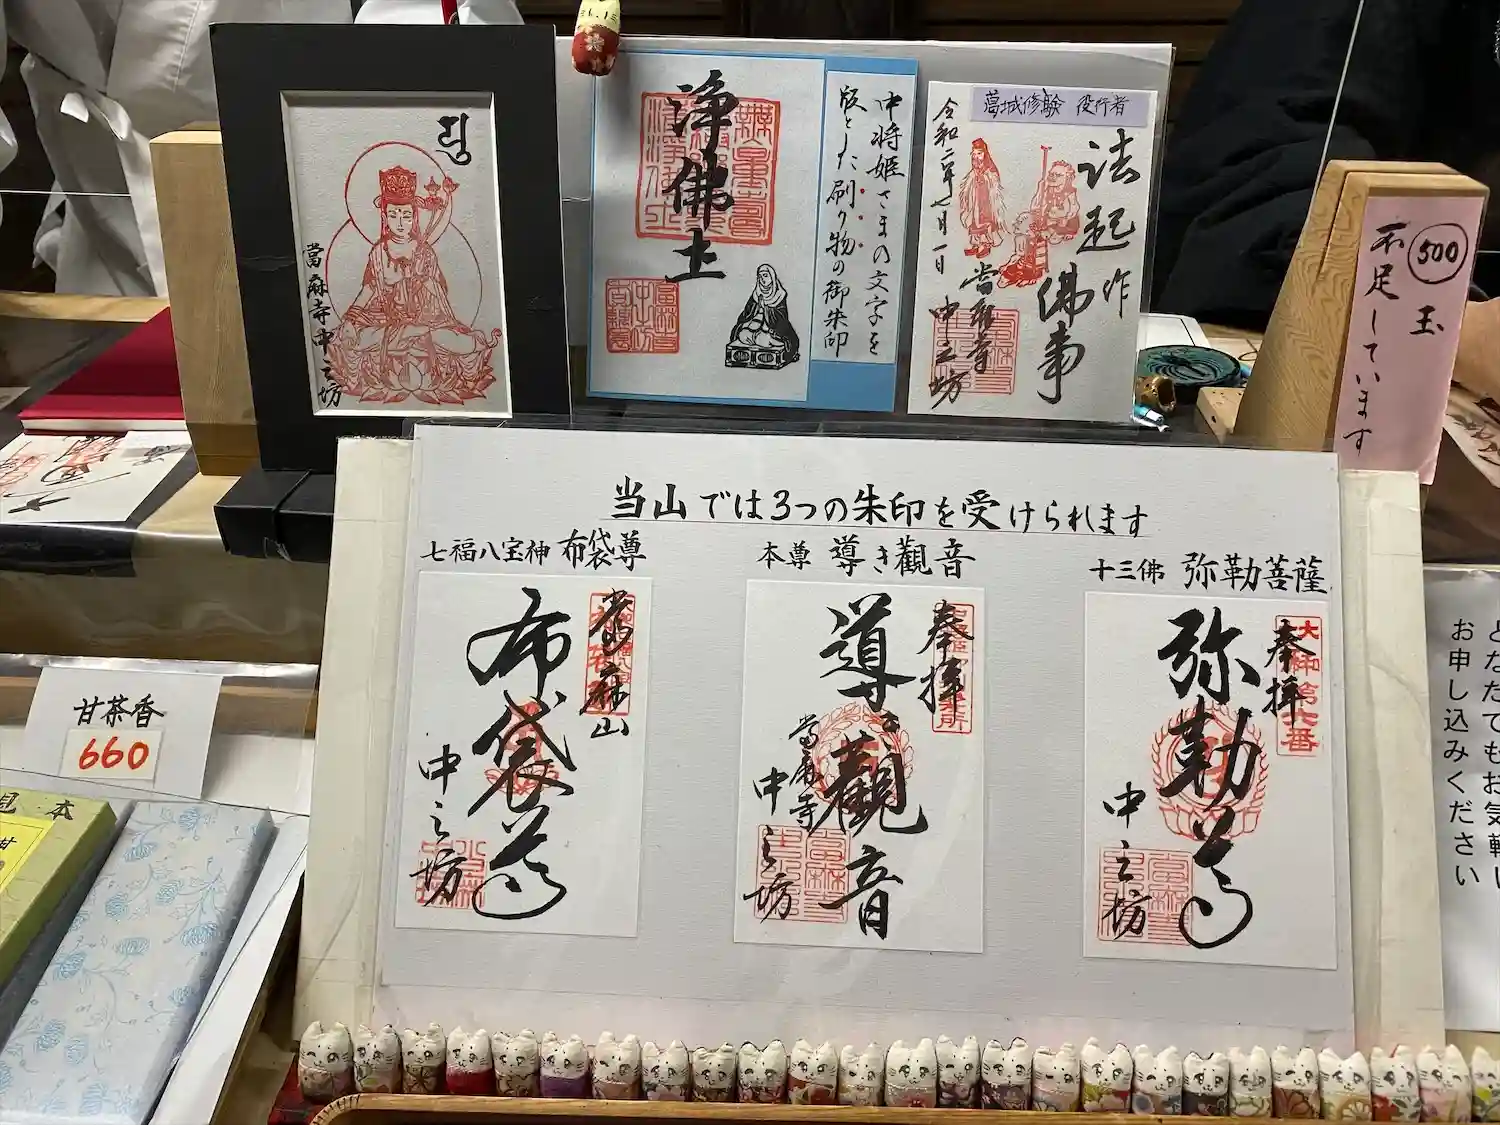 當麻寺中之坊
浄佛土
中将姫さまの文字を
版とした刷り物の御朱印
葛城修験 役行者
法起
作佛事
令和二年七月一日
當麻寺
中之坊
500
玉
不足しています
当山では3つの朱印を受けられます
七福八宝神 布袋尊
當麻山
布袋尊
中之坊
本尊 導き觀音
奉拝
導き觀音
當麻寺
中之坊
十三佛 弥勒菩薩
奉拝
大和第六番
弥勒尊
中之坊
甘茶香
660
見本
どなたでもお気軽に
お申し込みください